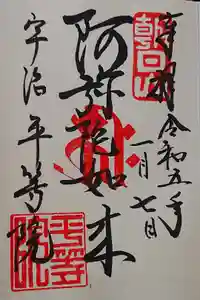 奉拝
令和五年
一月七日
朝日山
阿弥陀如来
宇治 平等院
平等院